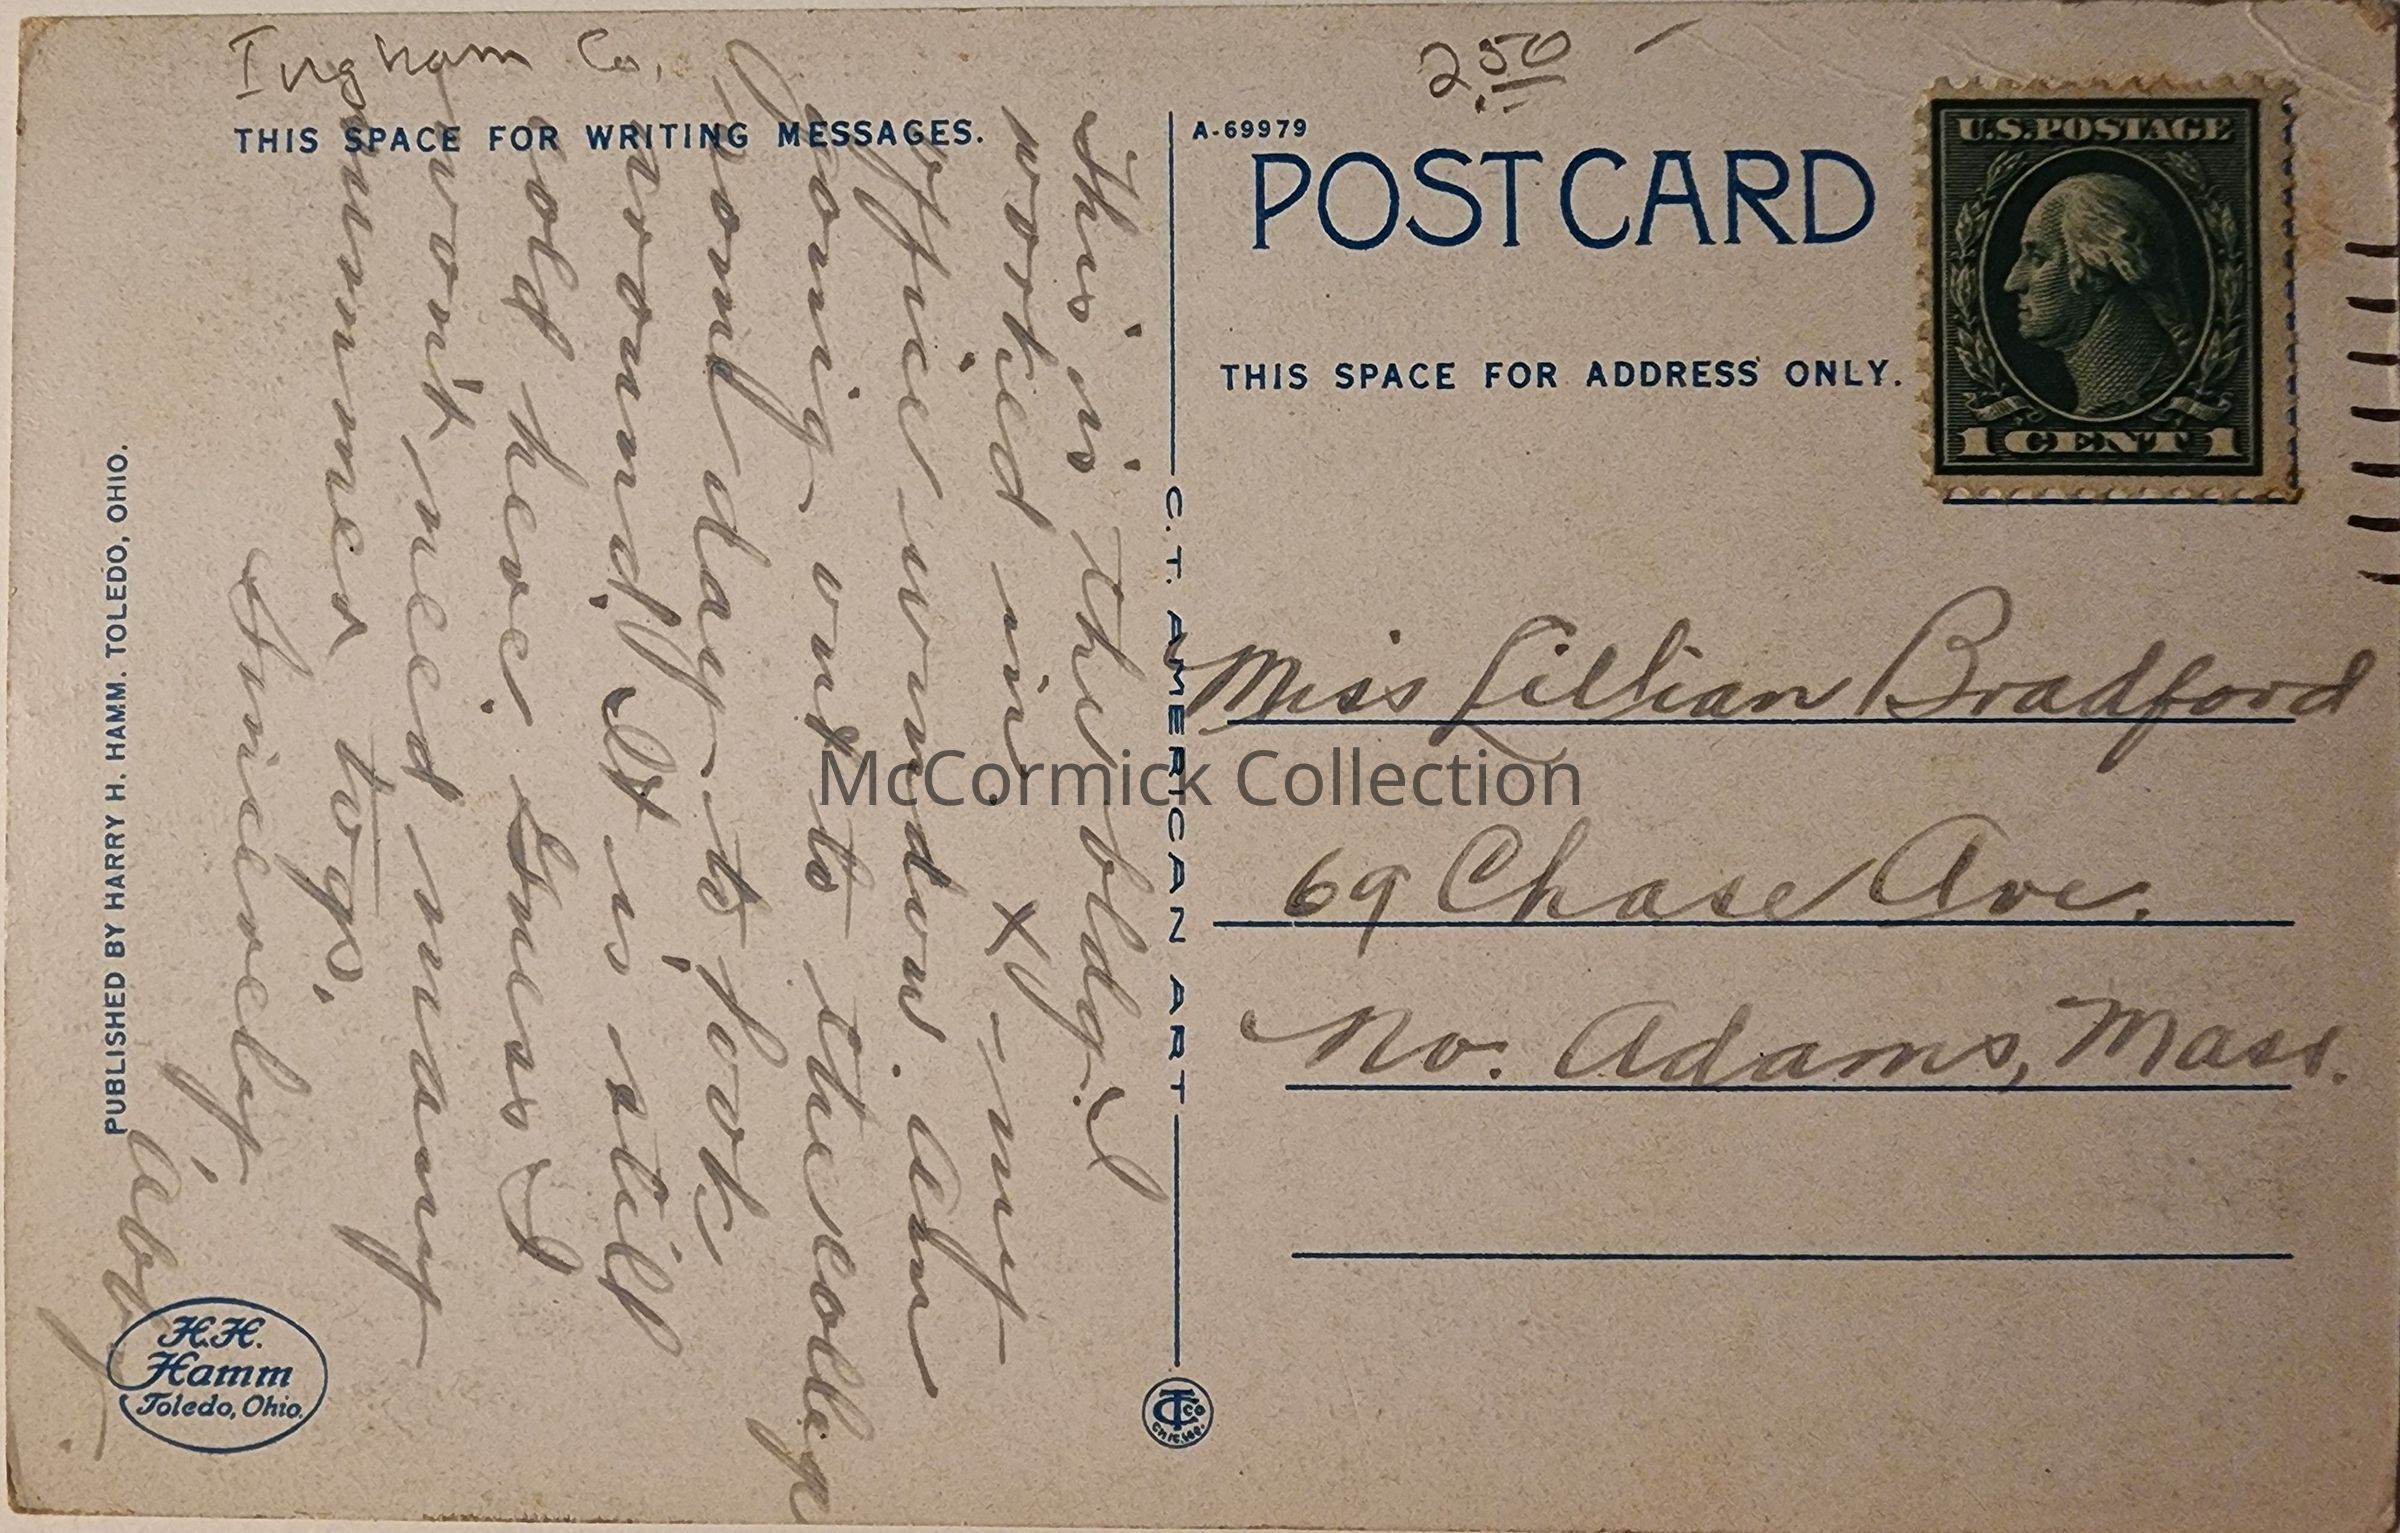 Ingham Co.
2.50
THIS SPACE FOR WRITING MESSAGES.
A-69979
POST CARD
THIS SPACE FOR ADDRESS ONLY.
U.S. POSTAGE
1 CENT 1
This is the bldg. I
worked in. X-my
office window. Am
going out to the college
some day to look
around. It is still
cold here. Guess I
won't need many
summer togs.
Sincerely,
Abby
Miss Lillian Bradford
69 Chase Ave.
No. Adams, Mass.
PUBLISHED BY HARRY H. HAMM. TOLEDO, OHIO.
C. T. AMERICAN ART
H.H.
Hamm
Toledo, Ohio.
CT Co
CHICAGO.
McCormick Collection